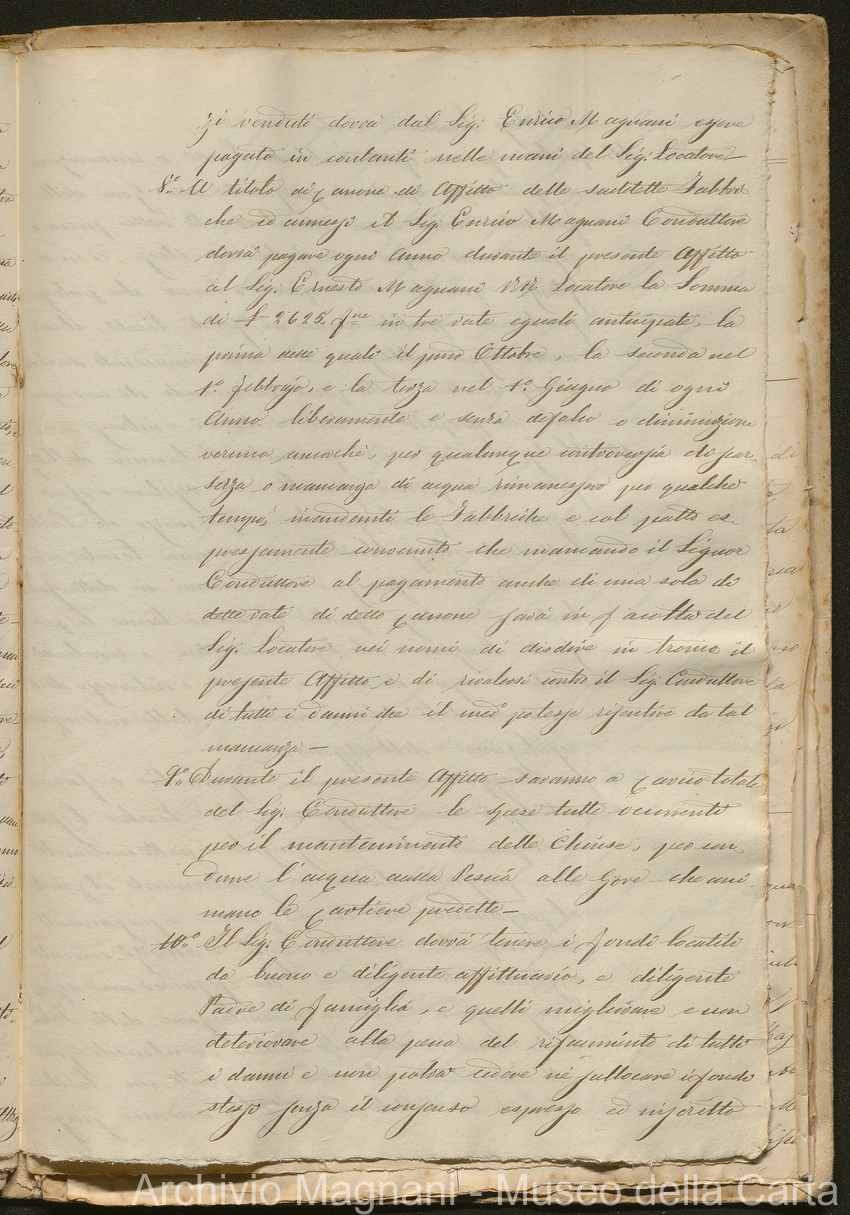 zi venduti dovrà dal Sig: Enrico Magnani essere
pagato in contanti nelle mani del Sig: Locatore—
8.° A titolo di Canone di Affitto delle suddette Fabbri
che ed annessi il Sig. Enrico Magnani Conduttore
dovrà pagare ogni Anno durante il presente Affitto
al Sig. Ernesto Magnani Locatore la Somma
di £ 2625. fne in tre rate eguali anticipate, la
prima delle quali il primo Ottobre, la seconda nel
1.° febbrajo, e la terza nel 1.° Giugno di ogni
Anno liberamente e senza difalco o diminuzione
veruna ancorchè, per qualunque controversia di scar-
sezza o mancanza di acqua rimanessero per qualche
tempo, inandenti le Fabbriche e col patto es-
pressamente convenuto che mancando il Signor
Conduttore al pagamento anche di una sola di
dette rate di detto Canone sarà in facoltà del
Sig: Locatore nei nomi di disdire in tronco il
presente Affitto, e di rivalersi contro il Sig. Conduttore
di tutti i danni che il med.° potesse risentire da tal
mancanza—
9.° Durante il presente Affitto saranno a Carico totale
del Sig: Conduttore le spese tutte occorrenti
per il mantenimento delle Chiuse, per con-
durre l'acqua dalla Pescia alle Gore che ani-
mano le Cartiere predette—
10.° Il Sig: Conduttore dovrà tenere i fondi locatili
da buono e diligente affittuario, e diligente
Padre di famiglia, e quelli migliorare e non
deteriorare alla pena del rifacimento di tutti
i danni e non potrà cedere nè sullocare i fondi
stessi senza il consenso espresso ed inscritto
Archivio Magnani - Museo della Carta